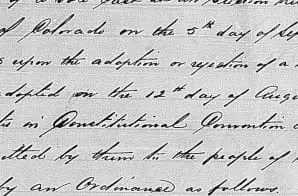 of Colorado on the 5th day of Sep
upon the adoption or rejection of a
adopted on the 12th day of Augu
in Constitutional Convention
by them to the people of
by an Ordinance as follows.